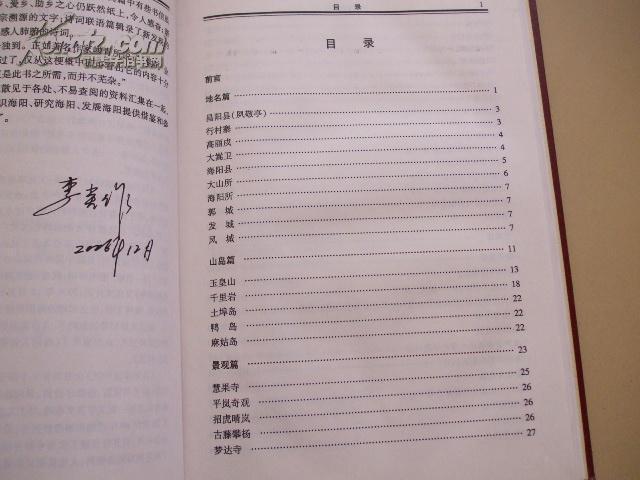 乡、爱乡、助乡之心仍跃然纸上,令人感奋;
宗溯源的文字;诗词联语篇辑录了新发
感人肺腑的诗词。
独到。正如著名作家
过了,仅从这梗概中
是此书之所需,而并不芜杂。”
散见于各处、不易查阅的资料汇集在一起,
识海阳、研究海阳、发展海阳提供借鉴和
了。
2006年12月
目 录 1
目 录
前言
地名篇 1
昌阳县(夙敬亭) 3
行村寨 3
高丽戍 4
大嵩卫 4
海阳县 5
大山所 6
海阳所 7
郭 城 7
发 城 7
凤 城 7
山岛篇 11
玉皇山 13
千里岩 18
土埠岛 22
鸭 岛 22
麻姑岛 22
景观篇 23
慧果寺 25
平岚奇观 26
招虎晴岚 26
古藤攀杨 26
梦达寺 27